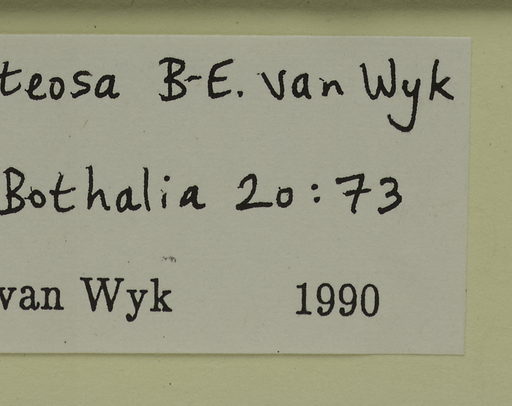 teosa B-E. van Wyk
Bothalia 20:73
van Wyk 1990